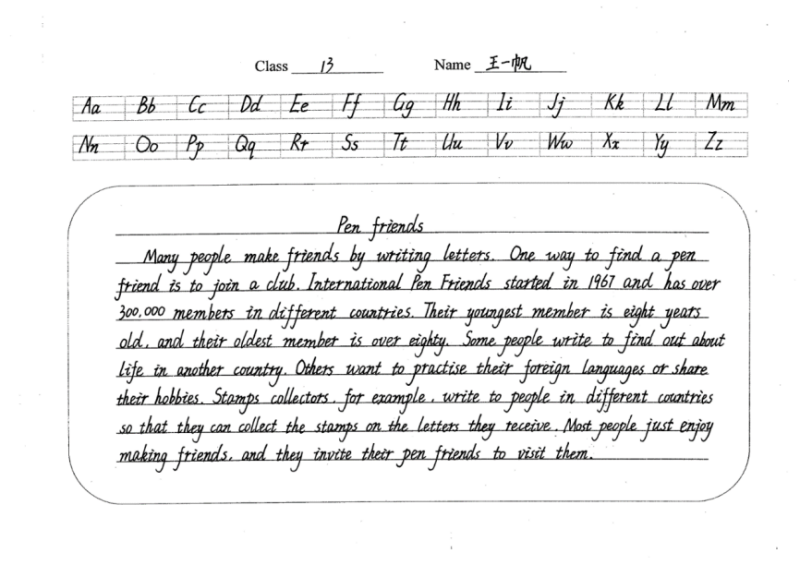 Class 13 Name 王一帆
Aa Bb Cc Dd Ee Ff Gg Hh Ii Jj Kk Ll Mm
Nn Oo Pp Qq Rr Ss Tt Uu Vv Ww Xx Yy Zz
Pen friends
Many people make friends by writing letters. One way to find a pen
friend is to join a club. International Pen Friends started in 1967 and has over
300,000 members in different countries. Their youngest member is eight years
old, and their oldest member is over eighty. Some people write to find out about
life in another country. Others want to practise their foreign languages or share
their hobbies. Stamps collectors, for example, write to people in different countries
so that they can collect the stamps on the letters they receive. Most people just enjoy
making friends, and they invite their pen friends to visit them.